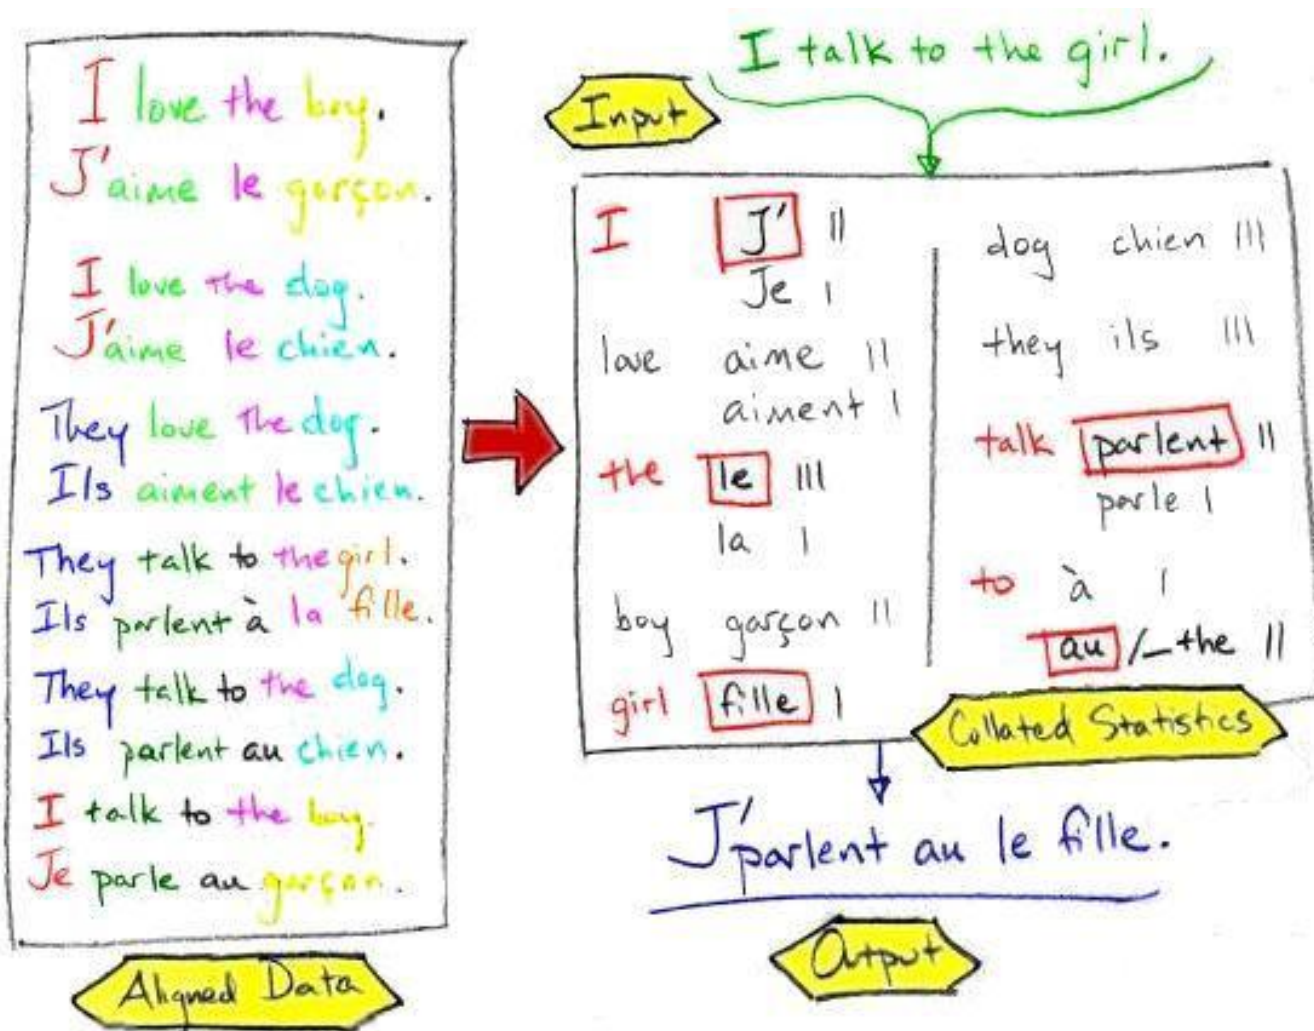 I love the boy.
J'aime le garçon.
I love the dog.
J'aime le chien.
They love the dog.
Ils aiment le chien.
They talk to the girl.
Ils parlent à la fille.
They talk to the dog.
Ils parlent au chien.
I talk to the boy.
Je parle au garçon.
Aligned Data
Input
I talk to the girl.
I J' ||
Je |
love aime ||
aiment |
the le |||
la |
boy garçon ||
girl fille |
dog chien |||
they ils |||
talk parlent ||
parle |
to à |
au /_the ||
Collated Statistics
J'parlent au le fille.
Output